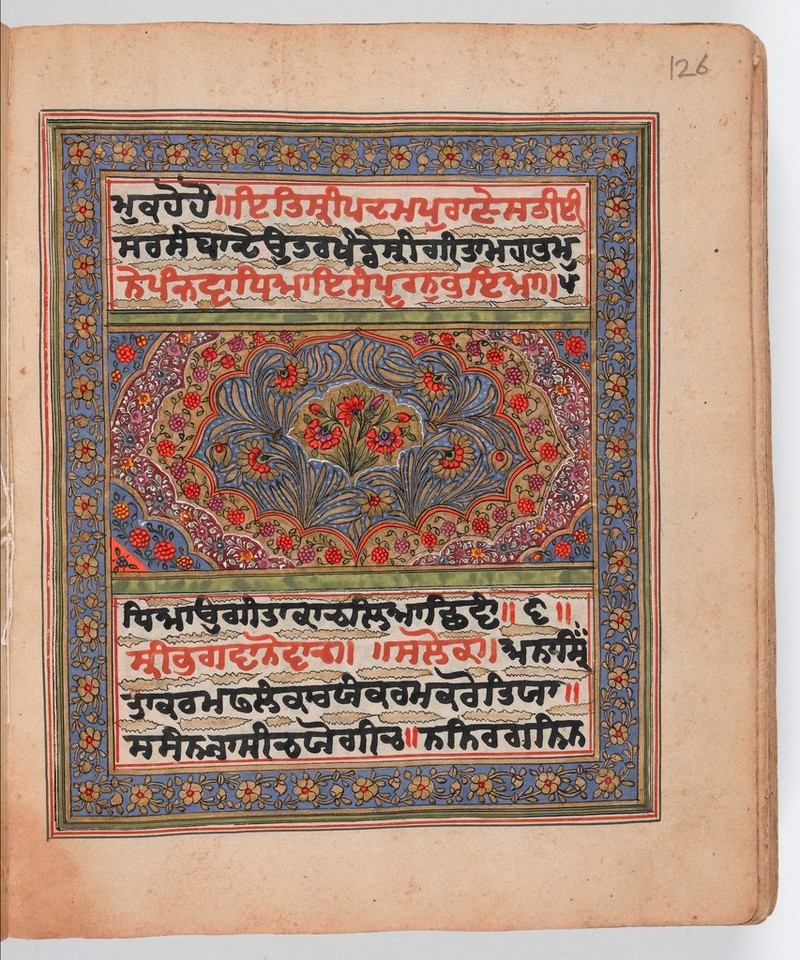 126
ਮੁਕਹੋਹੈ॥ਇਤਿਸ੍ਰੀਪਦਮਪੁਰਾਣੇਸਤੀਈ
ਸਰਸੰਬਾਦੇਉਤਰਖੰਡੇਸ੍ਰੀਗੀਤਾਮਹਾਤਮੁ
ਨੇਪੰਨਵਾਧਿਆਇਸੰਪੂਰਨੁਭਇਆ॥੫॥ਖ
ਧਿਆਉਗੀਤਾਕਾਚਲਿਆਛਿਵੇ॥ ੬ ॥
ਸ੍ਰੀਭਗਵਾਨੋਵਾਚ॥ ॥ਸਲੋਕ॥ਅਨਾਸ੍ਰਿੰ
ਤਾਕਰਮਫਲੰਕਾਰਯੰਕਰਮਕਰੋਤਿਯਾ॥
ਸਸੰਨਯਾਸੀਚਯੋਗੀਚ॥ਨਨਿਰਗਨਿਨ